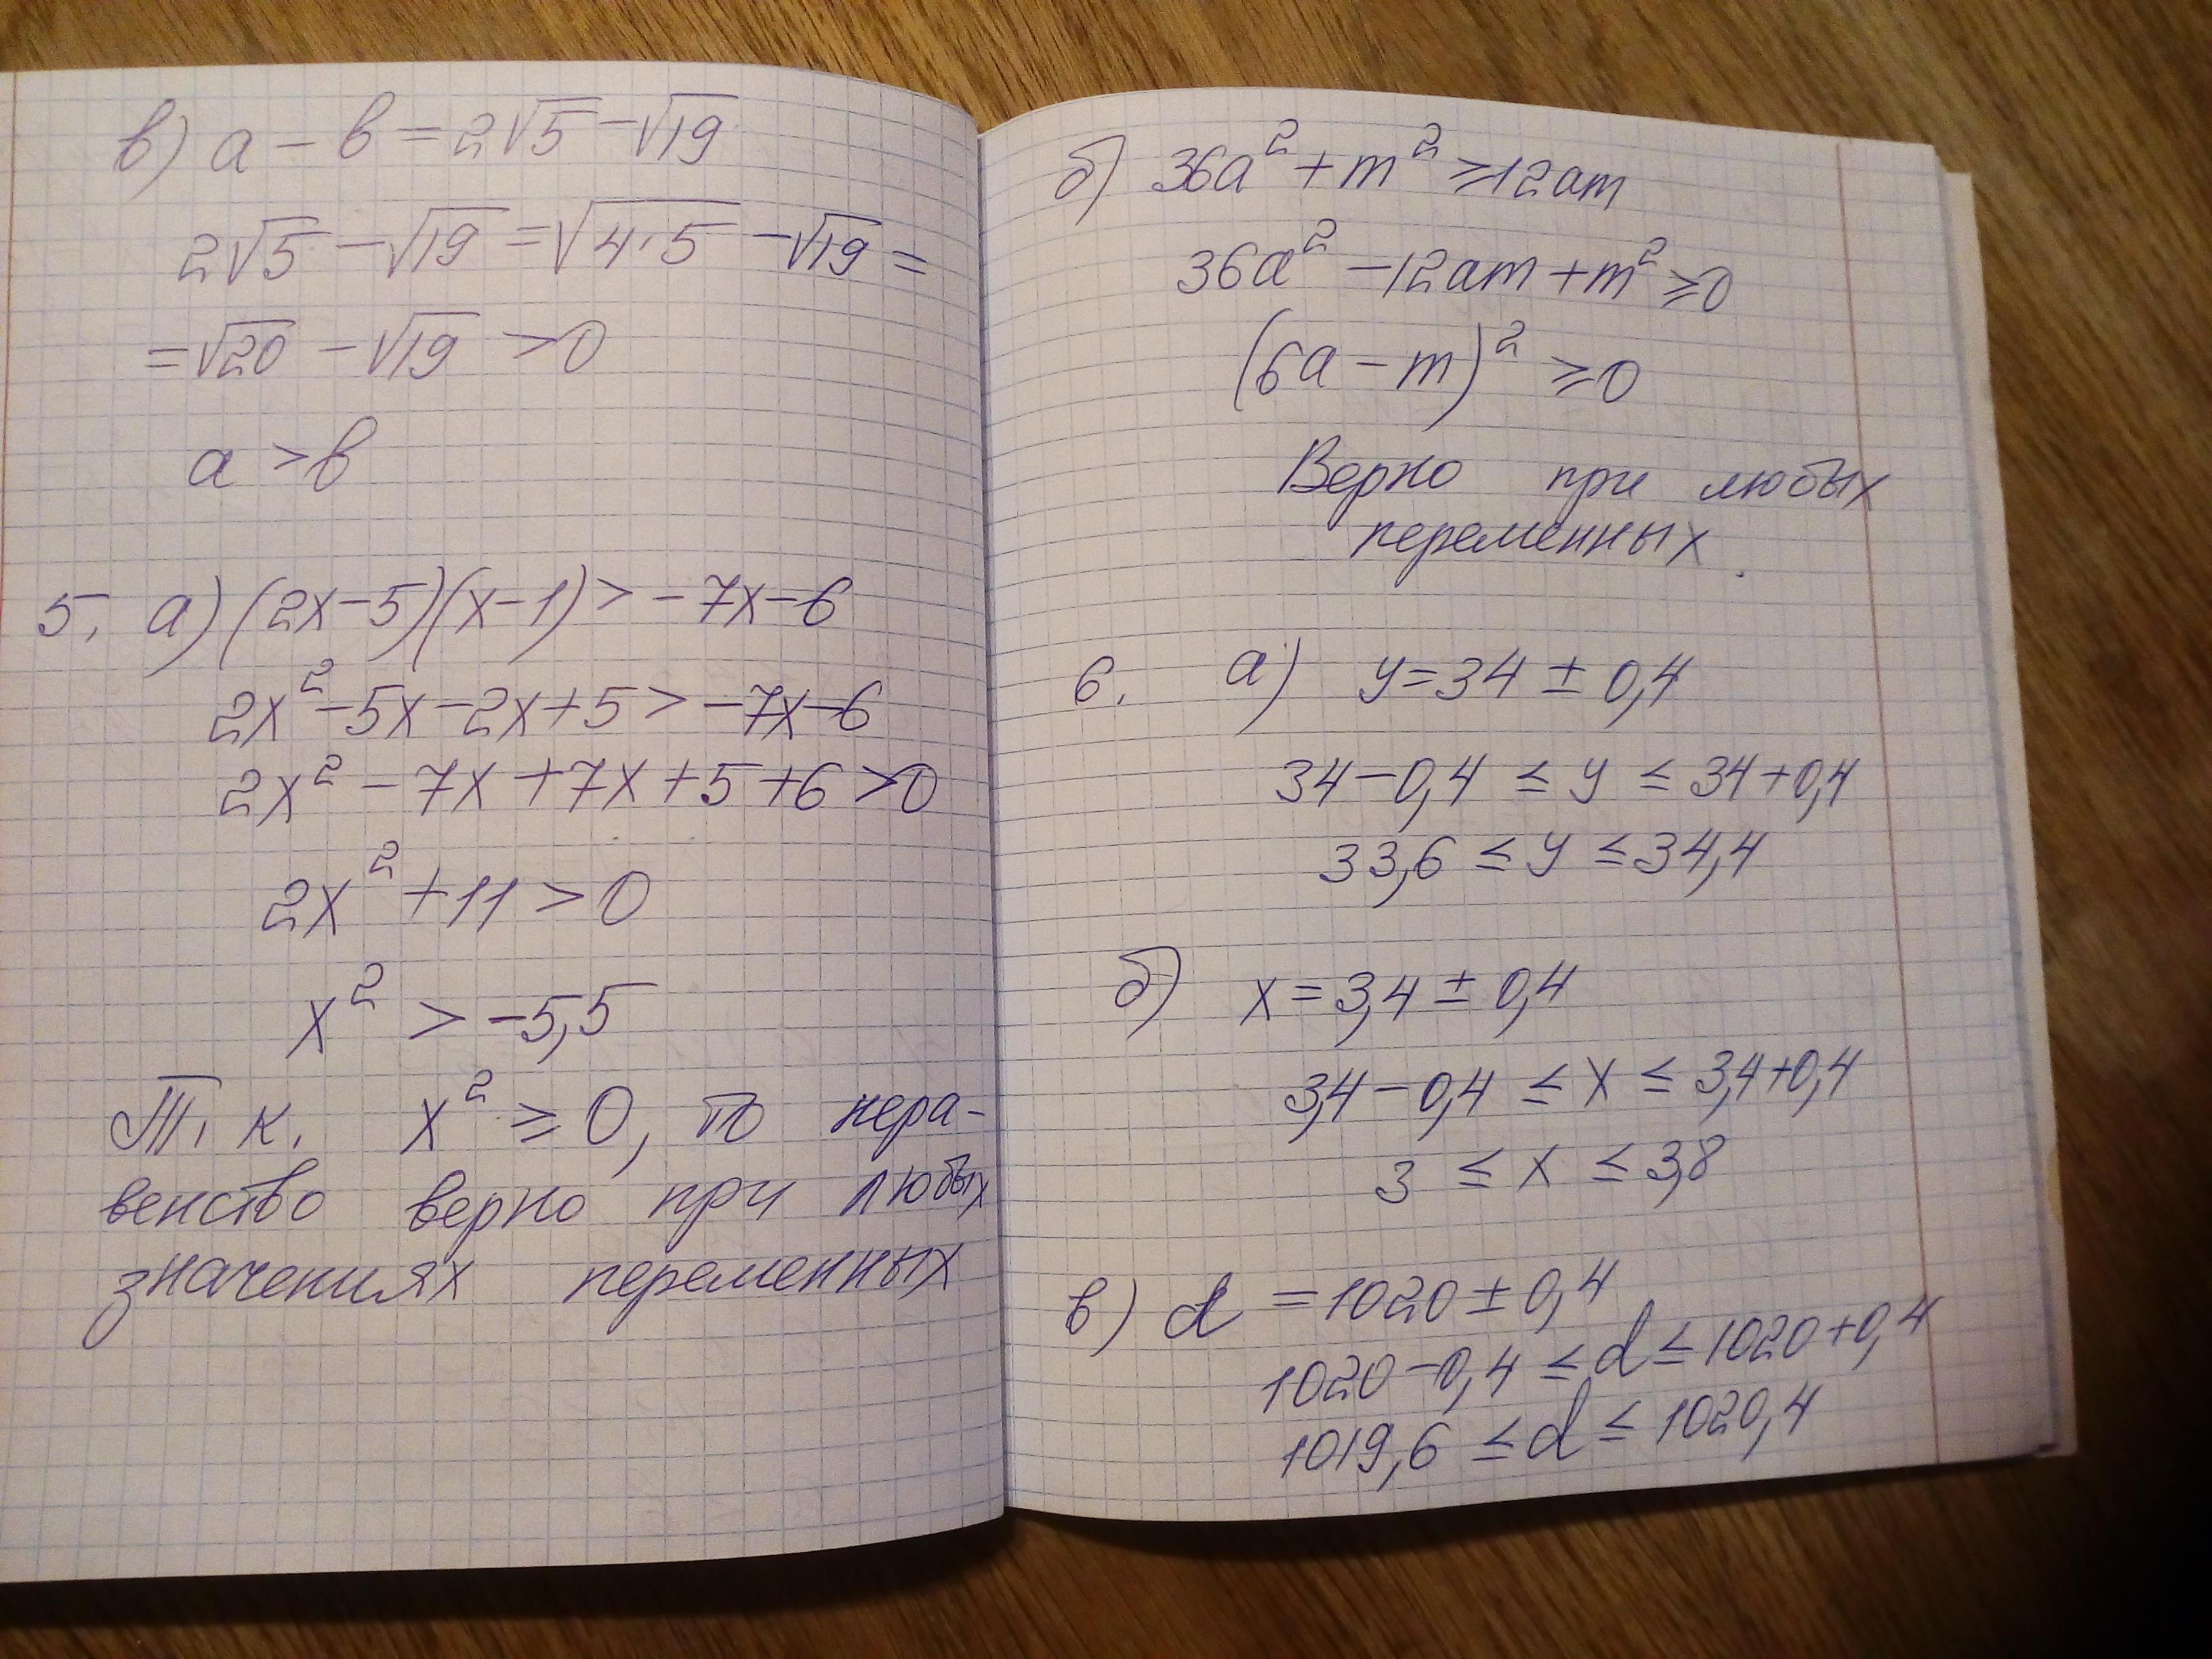 в) a - b = 2√5 - √19
2√5 - √19 = √4·5 - √19 =
= √20 - √19 > 0
a > b
5. a) (2x-5)(x-1) > -7x-6
2x²-5x-2x+5 > -7x-6
2x² - 7x + 7x + 5 + 6 > 0
2x² + 11 > 0
x² > -5,5
Т. к. x² ≥ 0, то нера-
венство верно при любых
значениях переменных
б) 36a² + m² ≥ 12am
36a² - 12am + m² ≥ 0
(6a - m)² ≥ 0
Верно при любых
переменных.
6. a) y = 34 ± 0,4
34 - 0,4 ≤ y ≤ 34 + 0,4
33,6 ≤ y ≤ 34,4
б) x = 3,4 ± 0,4
3,4 - 0,4 ≤ x ≤ 3,4 + 0,4
3 ≤ x ≤ 3,8
в) d = 1020 ± 0,4
1020 - 0,4 ≤ d ≤ 1020 + 0,4
1019,6 ≤ d ≤ 1020,4